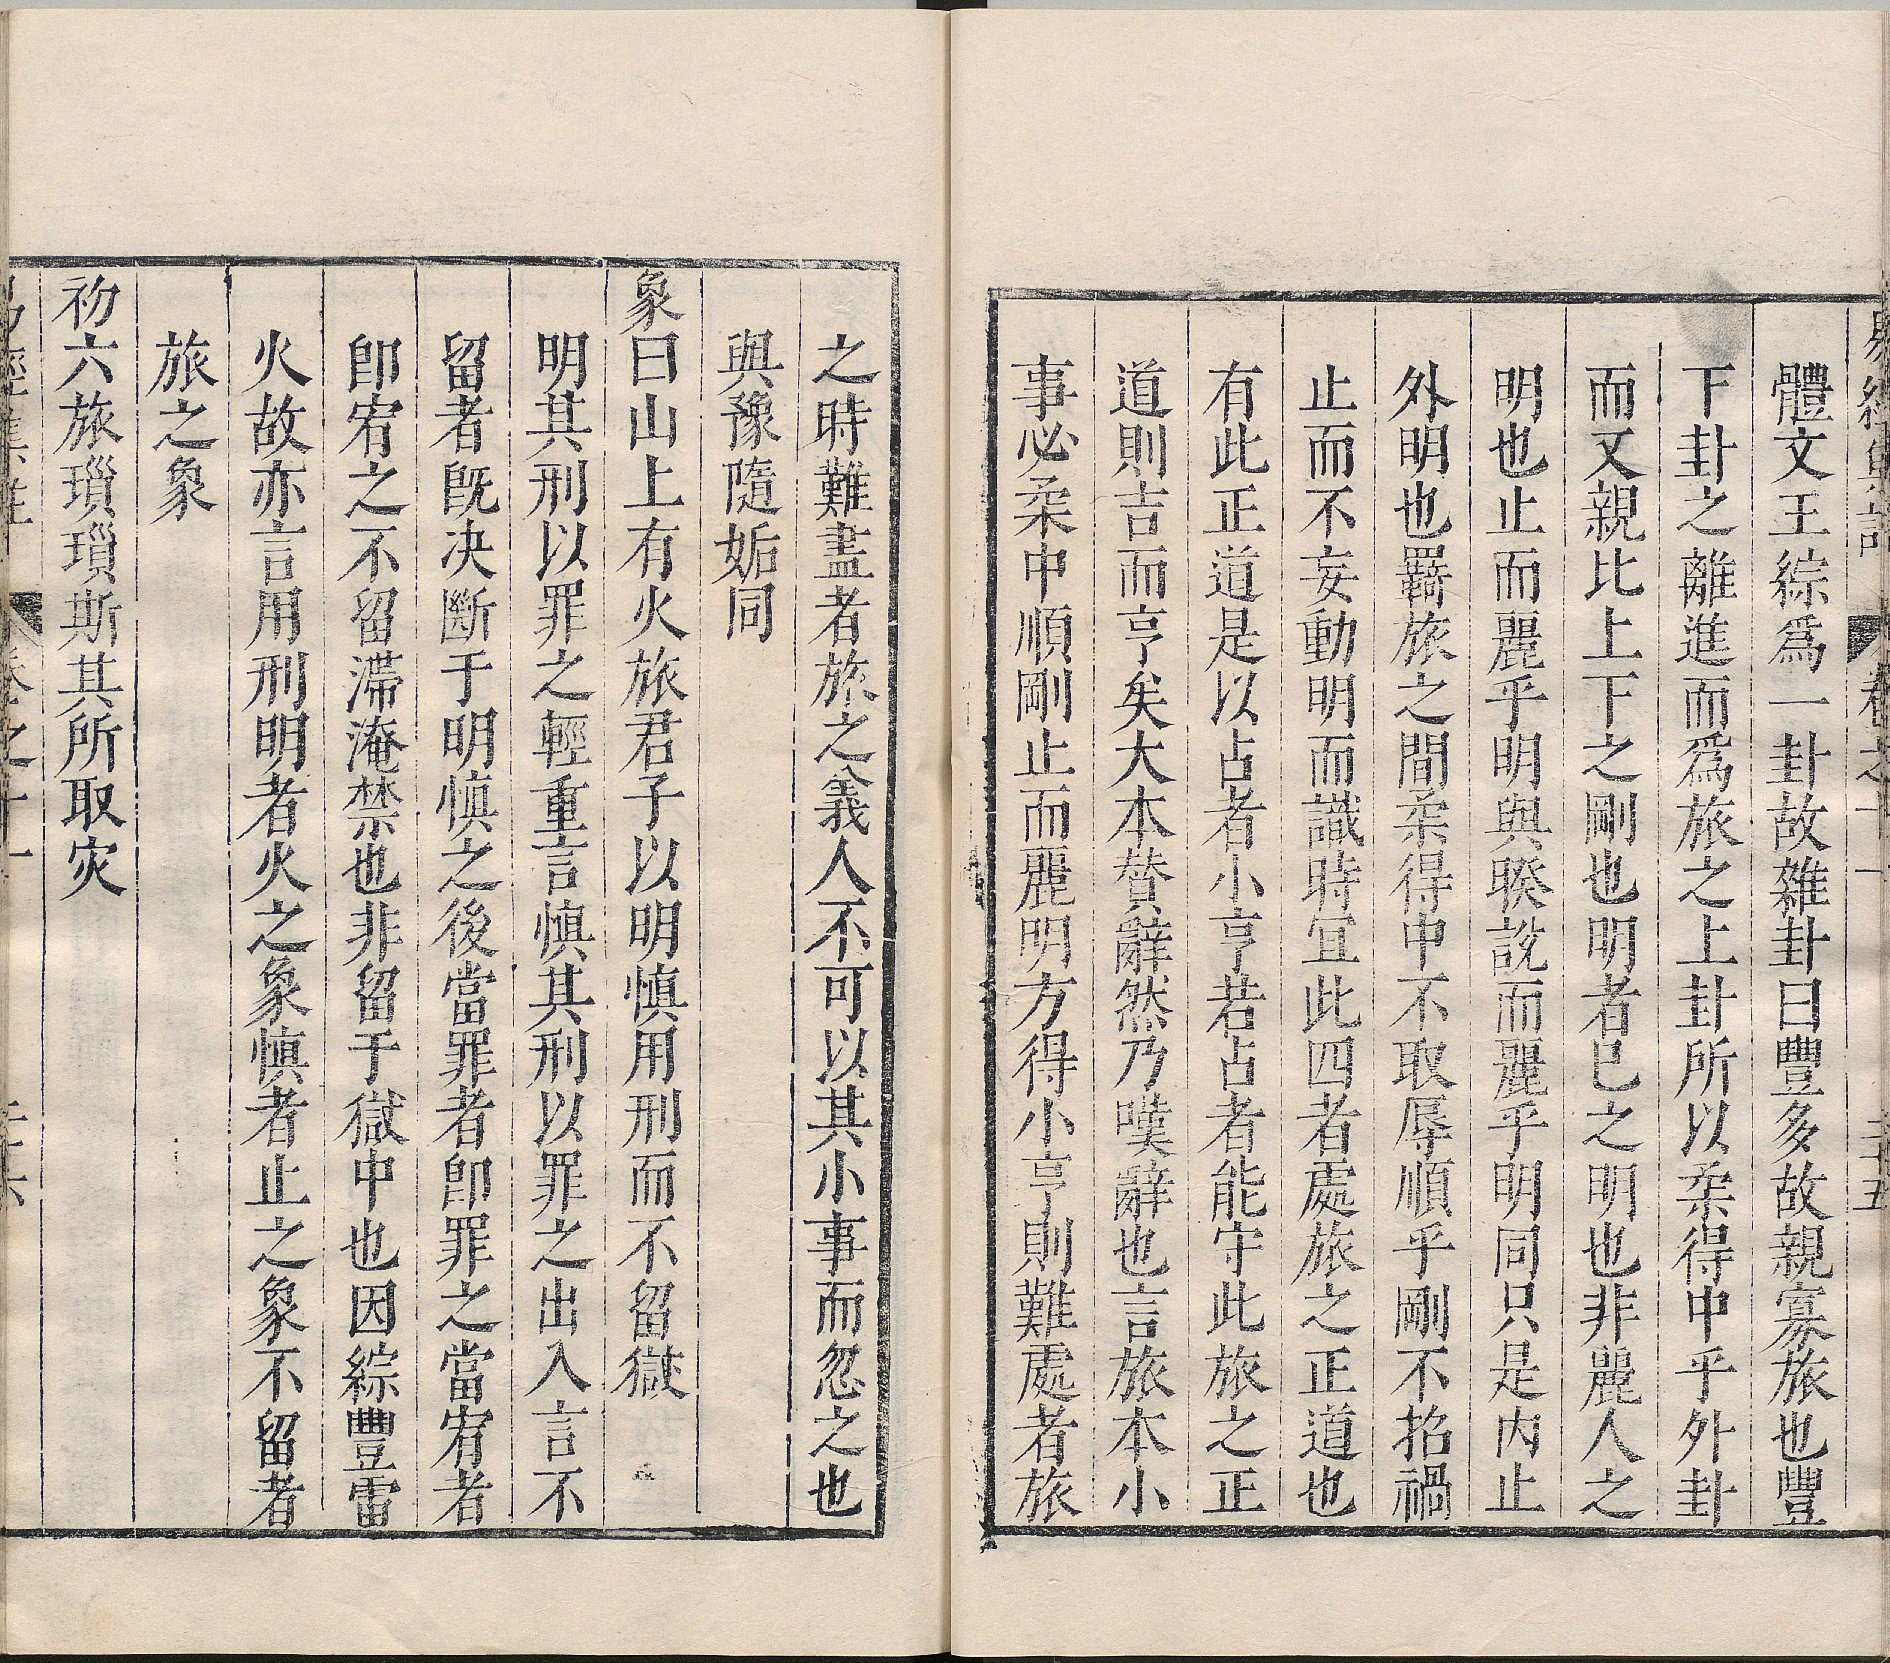 易經集註 卷之十一 二十五
體文王綜爲一卦故雜卦曰豐多故親寡旅也豐
下卦之離進而爲旅之上卦所以柔得中乎外卦
而又親比上下之剛也明者巳之明也非麗人之
明也止而麗乎明與睽說而麗乎明同只是内止
外明也羇旅之間柔得中不取辱順乎剛不招禍
止而不妄動明而識時宜此四者處旅之正道也
有此正道是以占者小亨若占者能守此旅之正
道則吉而亨矣大本贊辭然乃嘆辭也言旅本小
事必柔中順剛止而麗明方得小亨則難處者旅
之時難盡者旅之義人不可以其小事而忽之也
與豫隨姤同
象曰山上有火旅君子以明愼用刑而不留獄
明其刑以罪之輕重言愼其刑以罪之出入言不
留者旣决斷于明愼之後當罪者卽罪之當宥者
卽宥之不留滯淹禁也非留于獄中也因綜豐雷
火故亦言用刑明者火之象愼者止之象不留者
旅之象
初六旅瑣瑣斯其所取灾
易經集註 卷之十一 二十六